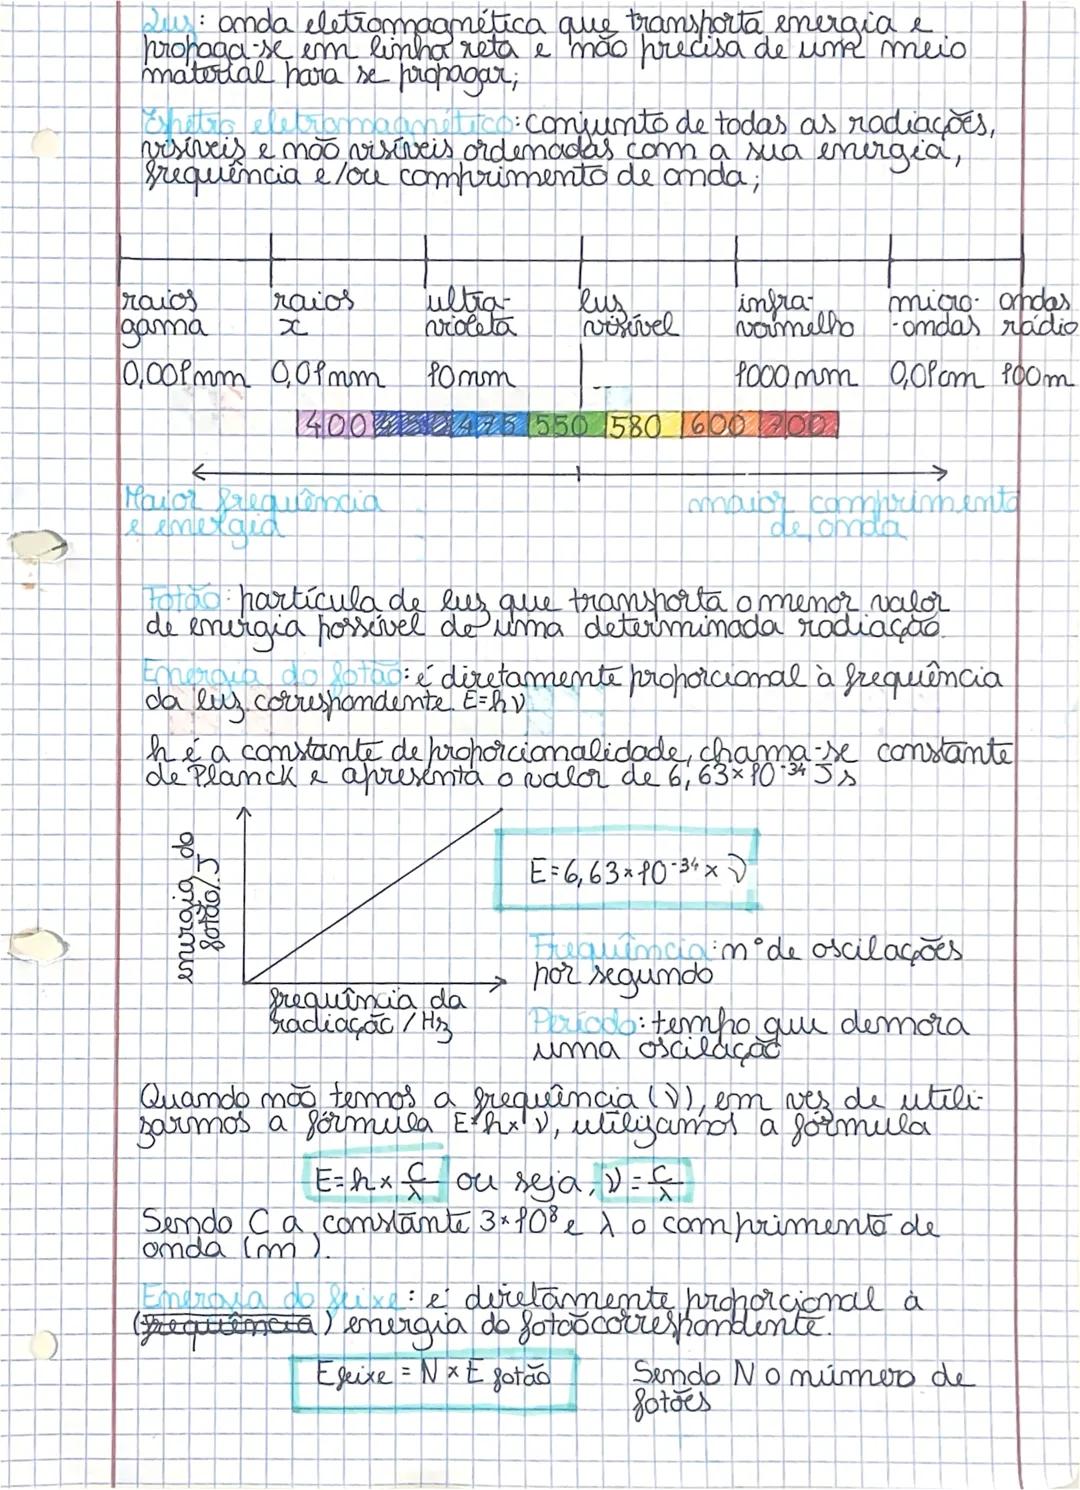 Luz: onda eletromagnética que transporta energia e
propaga-se em linha reta e não precisa de um meio
material para se propagar;
Espetro eletromagnético: conjunto de todas as radiações,
visíveis e não visíveis ordenadas com a sua energia,
frequência e/ou comprimento de onda;
raios raios ultra- luz infra- micro- ondas
gama x violeta visível vermelho -ondas rádio
0,001nm 0,01nm 10nm 1000nm 0,01cm 100m
400 450 475 550 580 600 700
Maior frequência maior comprimento
e energia de onda
Fotão: partícula de luz que transporta o menor valor
de energia possível de uma determinada radiação.
Energia do fotão: é diretamente proporcional à frequência
da luz correspondente. E=hν
h é a constante de proporcionalidade, chama-se constante
de Planck e apresenta o valor de 6,63×10⁻³⁴ J s
energia do
fotão/J
E=6,63×10⁻³⁴×ν
frequência da
radiação/Hz
Frequência: nº de oscilações
por segundo
Período: tempo que demora
uma oscilação
Quando não temos a frequência (ν), em vez de utili-
zarmos a fórmula E=h×ν, utilizamos a fórmula
E=h×c/λ ou seja, ν=c/λ
Sendo C a constante 3×10⁸ e λ o comprimento de
onda (m).
Energia do feixe: é diretamente proporcional à
(frequência) energia do fotão correspondente.
Efeixe = N×E fotão
Sendo N o número de
fotões